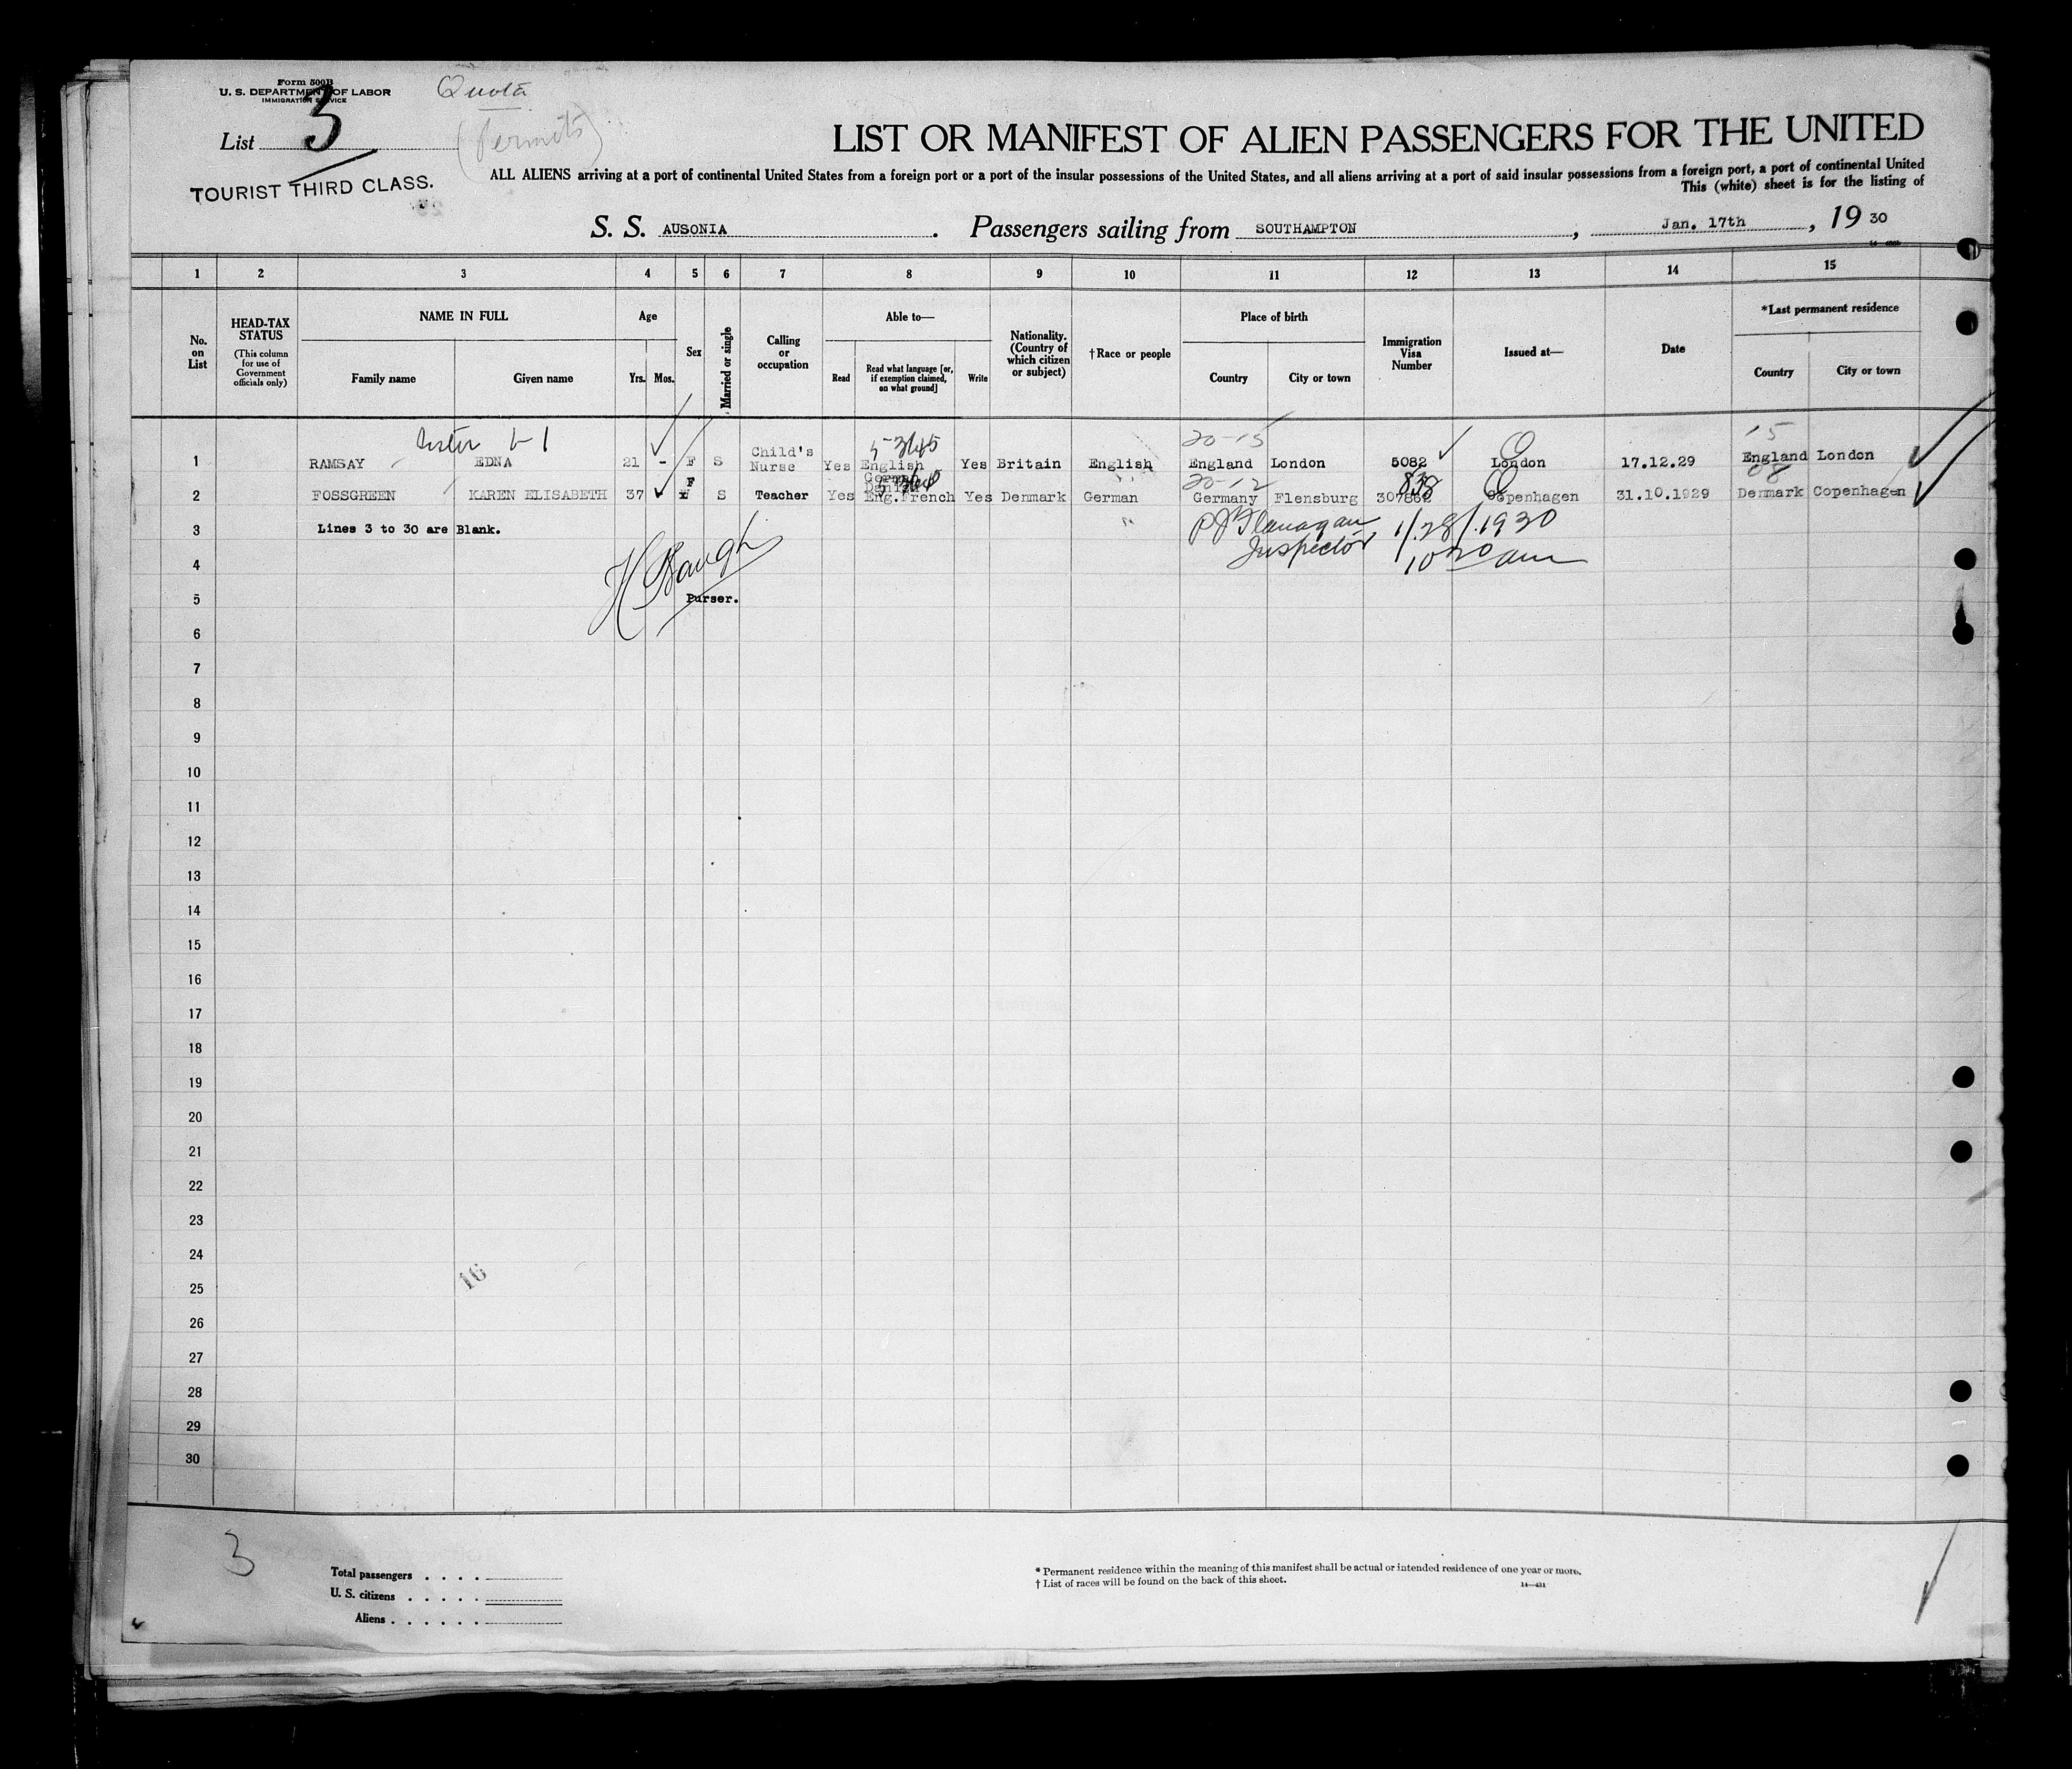 Form 500B
U. S. DEPARTMENT OF LABOR
IMMIGRATION SERVICE
Quota
(Permits)
List 3
TOURIST THIRD CLASS.
LIST OR MANIFEST OF ALIEN PASSENGERS FOR THE UNITED
ALL ALIENS arriving at a port of continental United States from a foreign port or a port of the insular possessions of the United States, and all aliens arriving at a port of said insular possessions from a foreign port, a port of continental United
This (white) sheet is for the listing of
S. S. AUSONIA . Passengers sailing from SOUTHAMPTON , Jan. 17th , 19 30
1 2 3 4 5 6 7 8 9 10 11 12 13 14 15
No. on List
HEAD-TAX STATUS
(This column for use of Government officials only)
NAME IN FULL
Family name Given name
Age
Yrs. Mos.
Sex
Married or single
Calling or occupation
Able to—
Read
Read what language [or, if exemption claimed, on what ground]
Write
Nationality. (Country of which citizen or subject)
†Race or people
Place of birth
Country City or town
Immigration Visa Number
Issued at—
Date
*Last permanent residence
Country City or town
5-3645 20-15 15
1 RAMSAY EDNA 21 - F S Child's Nurse Yes English Yes Britain English England London 5082 London 17.12.29 England London
20-12 838 08
2 FOSSGREEN KAREN ELISABETH 37 F S Teacher Yes Eng.French Yes Denmark German Germany Flensburg Copenhagen 31.10.1929 Denmark Copenhagen
3 Lines 3 to 30 are Blank.
P J Flanagan 1/28/1930
Inspector 10 20 am
4
H Baugh
5 Purser.
6
7
8
9
10
11
12
13
14
15
16
17
18
19
20
21
22
23
24
16
25
26
27
28
29
30
3
Total passengers . . . .
U. S. citizens . . . . .
Aliens . . . . . .
* Permanent residence within the meaning of this manifest shall be actual or intended residence of one year or more.
† List of races will be found on the back of this sheet.
14—431